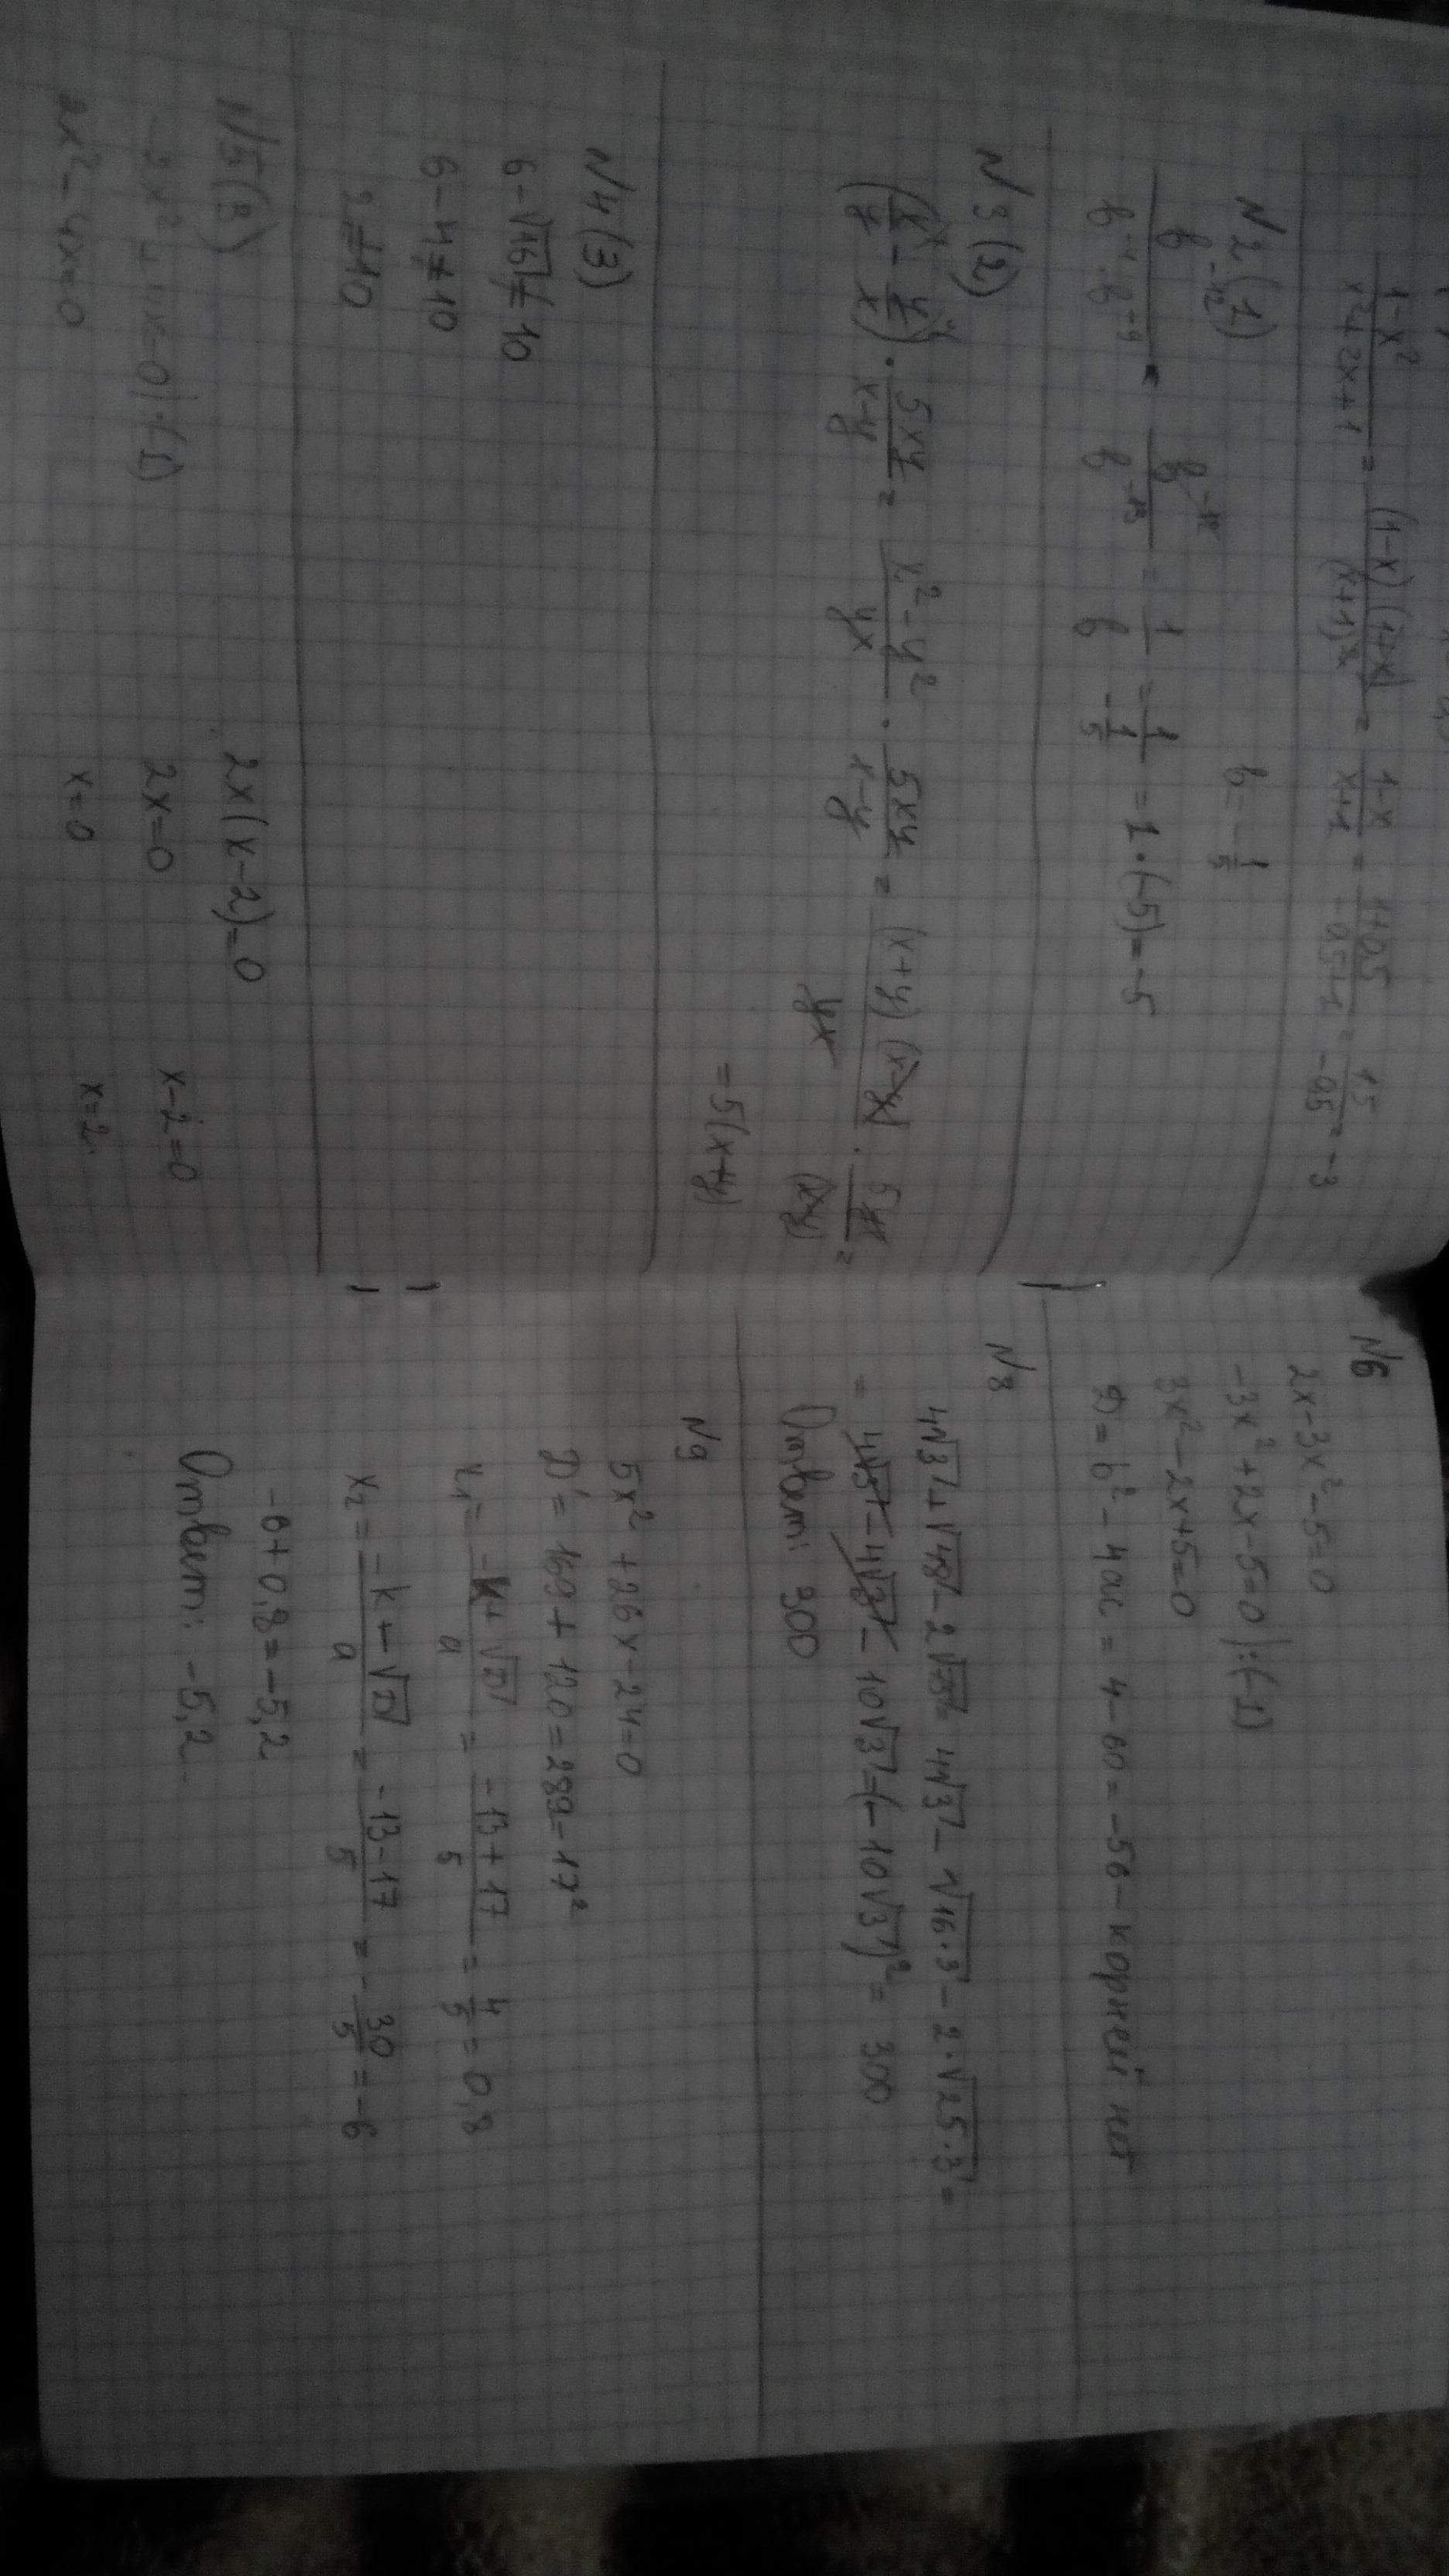 1-x²/x²+2x+1 = (1-x)(1+x)/(x+1)² = 1-x/x+1 = 1+0,5/-0,5+1 = 1,5/-0,5 = -3
N2(1) b = -1/5
b⁻¹²/b⁻⁴·b⁻⁹ = b⁻¹²/b⁻¹³ = 1/b = 1/-1/5 = 1·(-5) = -5
N3(2)
(x/y - y/x) · 5xy/x-y = x²-y²/yx · 5xy/x-y = (x+y)(x-y)/yx · 5yx/(x-y) =
= 5(x+y)
N4(3)
6-√16 ≠ 10
6-4 ≠ 10
2 ≠ 10
N5(3)
-2x²+4x=0 |:(-1)
2x²-4x=0
2x(x-2)=0
2x=0 x-2=0
x=0 x=2
N6
2x-3x²-5=0
-3x²+2x-5=0 |:(-1)
3x²-2x+5=0
D=b²-4ac=4-60=-56 - корней нет
N8
4√3+√48-2√75=4√3-√16·3-2·√25·3=
=4√3-4√3-10√3=(-10√3)²=300
Ответ: 300
N9
5x²+26x-24=0
D'=169+120=289=17²
x₁=-k+√D/a=-13+17/5=4/5=0,8
x₂=-k-√D/a=-13-17/5=-30/5=-6
-6+0,8=-5,2
Ответ: -5,2